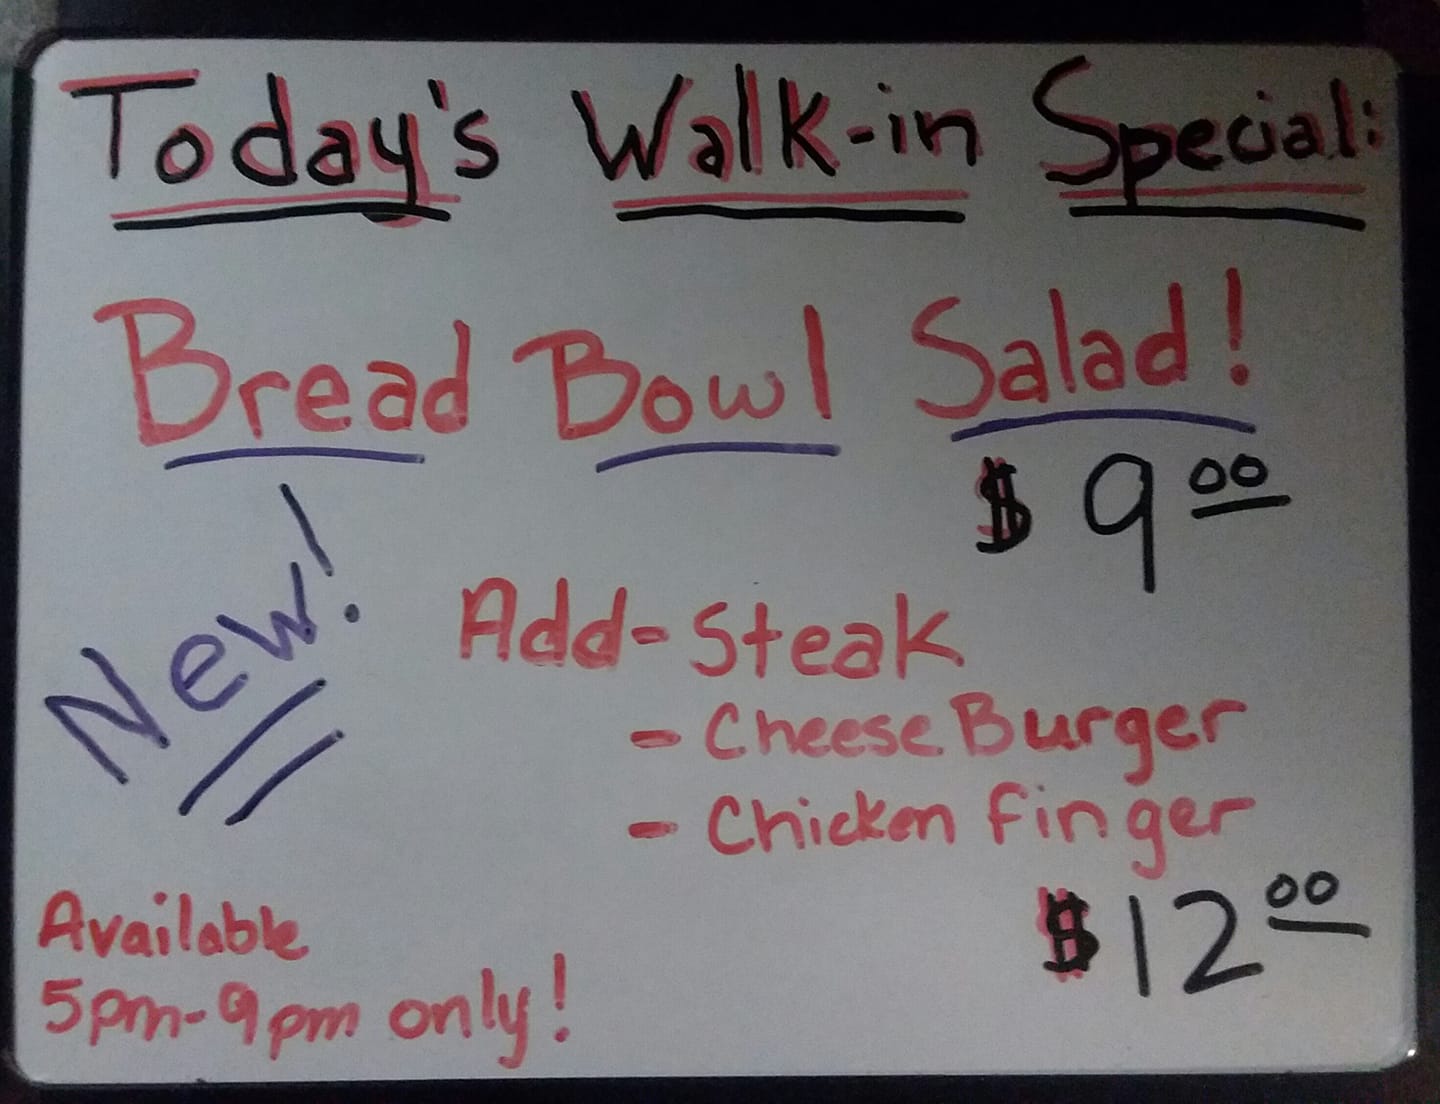 Today's Walk-in Special:
Bread Bowl Salad!
$9.00
New!
Add-Steak
- Cheese Burger
- Chicken Finger
$12.00
Available
5pm-9pm only!